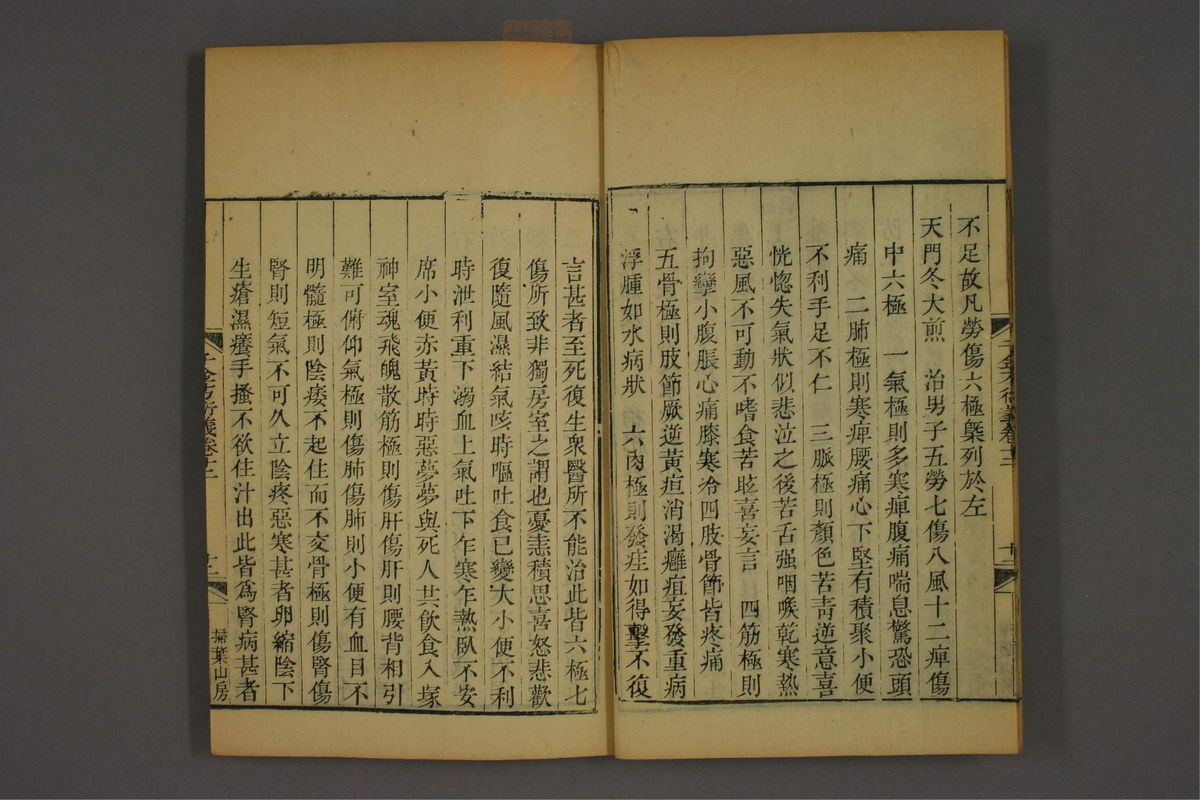 不足故凡勞傷六極檃列於左
天門冬大煎　治男子五勞七傷八風十二痺傷
中六極　一氣極則多寒痺腹痛喘息驚恐頭
痛　二肺極則寒痺腰痛心下堅有積聚小便
不利手足不仁　三脈極則顏色苦青逆意喜
恍惚失氣狀似悲泣之後苦舌强咽喉乾寒熱
惡風不可動不嗜食苦眩喜妄言　四筋極則
拘攣小腹脹心痛膝寒冷四肢骨節皆疼痛
五骨極則肢節厥逆黃疸消渴癰疽妄發重病
浮腫如水病狀　六肉極則發疰如得擊不復
言甚者至死復生衆醫所不能治此皆六極七
傷所致非獨房室之謂也憂恚積思喜怒悲歡
復隨風濕結氣咳時嘔吐食已變大小便不利
時泄利重下溺血上氣吐下乍寒乍熱臥不安
席小便赤黃時時惡夢夢與死人共飲食入塚
神室魂飛魄散筋極則傷肝傷肝則腰背相引
難可俯仰氣極則傷肺傷肺則小便有血目不
明髓極則陰痿不起住而不交骨極則傷腎傷
腎則短氣不可久立陰疼惡寒甚者卵縮陰下
生瘡濕癢手搔不欲住汁出此皆爲腎病甚者
千金方衍義卷十二
掃葉山房